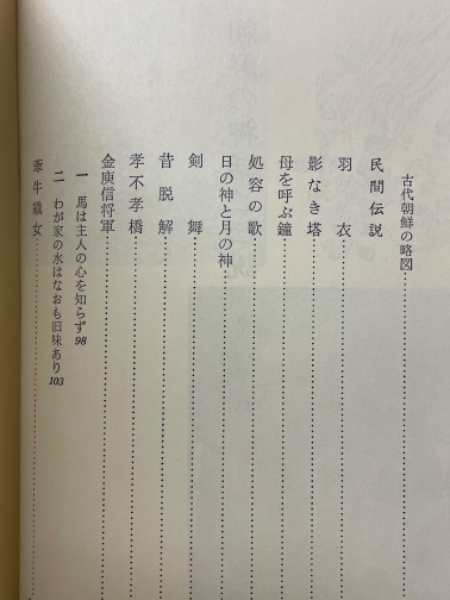 古代朝鮮の略図
民間伝説
羽衣
影なき塔
母を呼ぶ鐘
処容の歌
日の神と月の神
剣舞
昔脱解
孝不孝橋
金庾信将軍
一 馬は主人の心を知らず 98
二 わが家の水はなおも旧味あり 103
牽牛織女